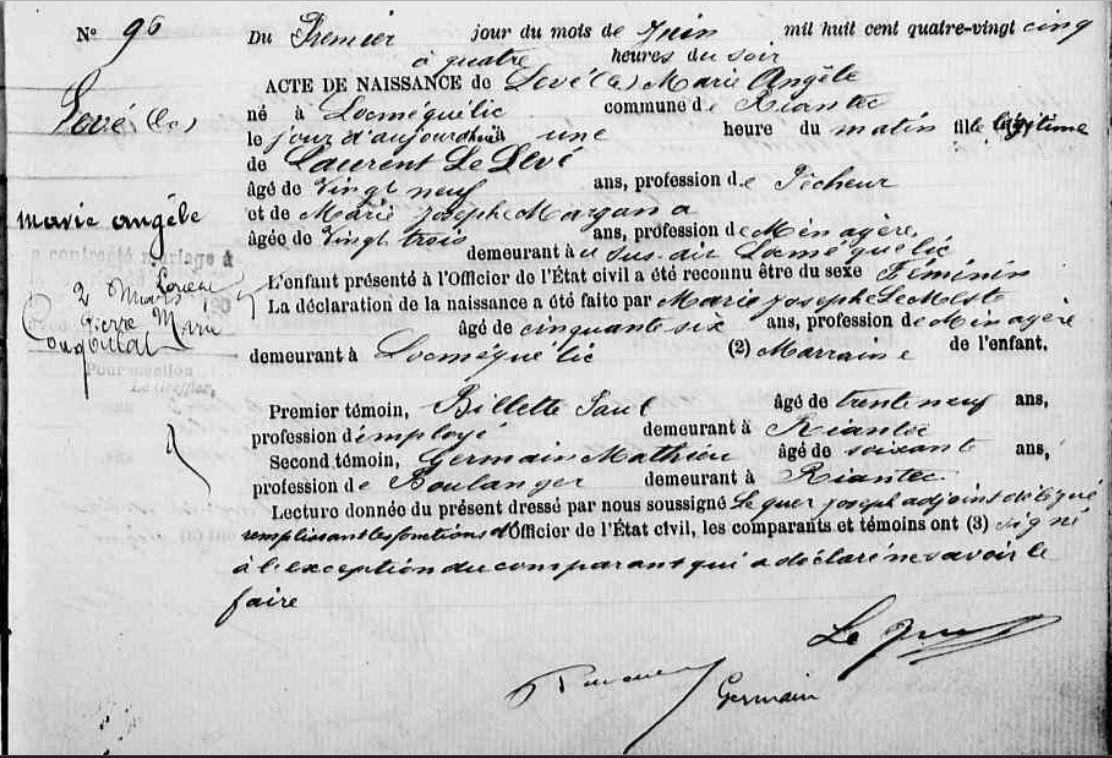 N° 96
Du Premier jour du mois de Juin mil huit cent quatre-vingt cinq
à quatre heures du soir
ACTE DE NAISSANCE de Levé (Le) Marie Angèle
né à Locméquélic commune de Riantec
le jour d'aujourd'hui à une heure du matin fille légitime
de Laurent Le Levé
âgé de Vingt neuf ans, profession de Pêcheur
et de Marie Josephe Morgan
âgée de Vingt trois ans, profession de Ménagère,
demeurant à u sus-dit Locméquélic
L'enfant présenté à l'Officier de l'État civil a été reconnu être du sexe Féminin
La déclaration de la naissance a été faite par Marie Josephe Le
âgé de cinquante six ans, profession de Ménagère
demeurant à Locméquélic (2) Marraine de l'enfant.
Premier témoin, Billette Paul âgé de trente neuf ans,
profession d'employé demeurant à Riantec
Second témoin, Germain Mathieu âgé de soixante ans,
profession de Boulanger demeurant à Riantec
Lecture donnée du présent dressé par nous soussigné Le quer Joseph adjoint délégué
remplissant les fonctions d'Officier de l'État civil, les comparants et témoins ont (3) signé
à l'exception du comparant qui a déclaré ne savoir le
faire
Levé (Le)
marie angèle
a contracté mariage à
Lorient
2 Mars
Pierre Marie
Pour mention
Le Greffier,
Le Quer
Germain